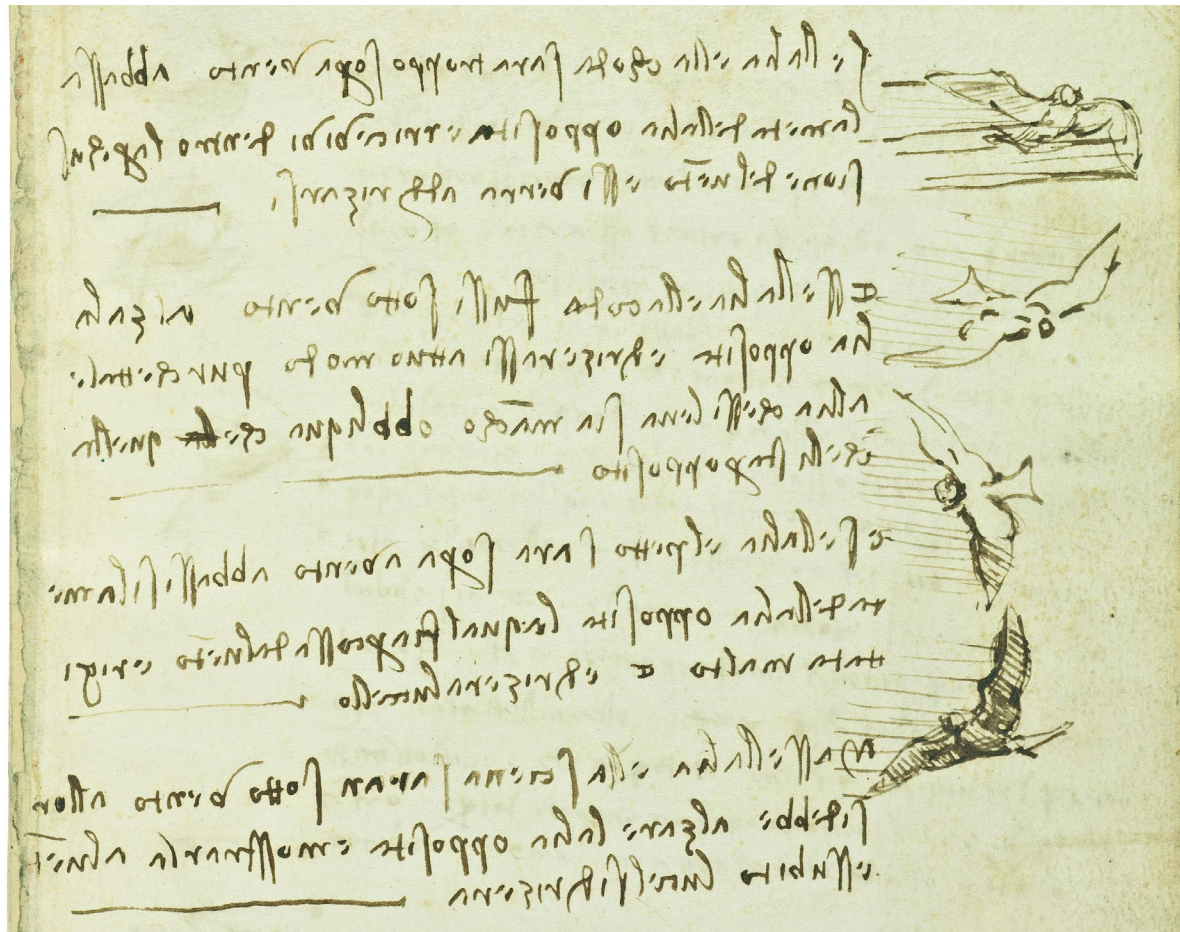 se llalia ella choda sara troppo sopra vento abbassa
lameta dellalia opposita dentro laperchus
sione delvēto essi verra addirizarsi
E sse llalia ella coda fussi sotto vento alza la
lia opposita e dirizerassi attuo modo pur chettale
alia chessi lieva sia mācho obbliqua che quella
chelli sta opposito
esse lalia elpetto sara sopra vento abbassisi lame
ta dellalia opposita laqual fia percossa dalvēto e ripi
in alto E edirizera lucciello
Ma sse llalia ella sciena saran sotto vento allor
sidebbe alzare lalia opposita e mosstrarla alvē
essubito luciel si dirizera